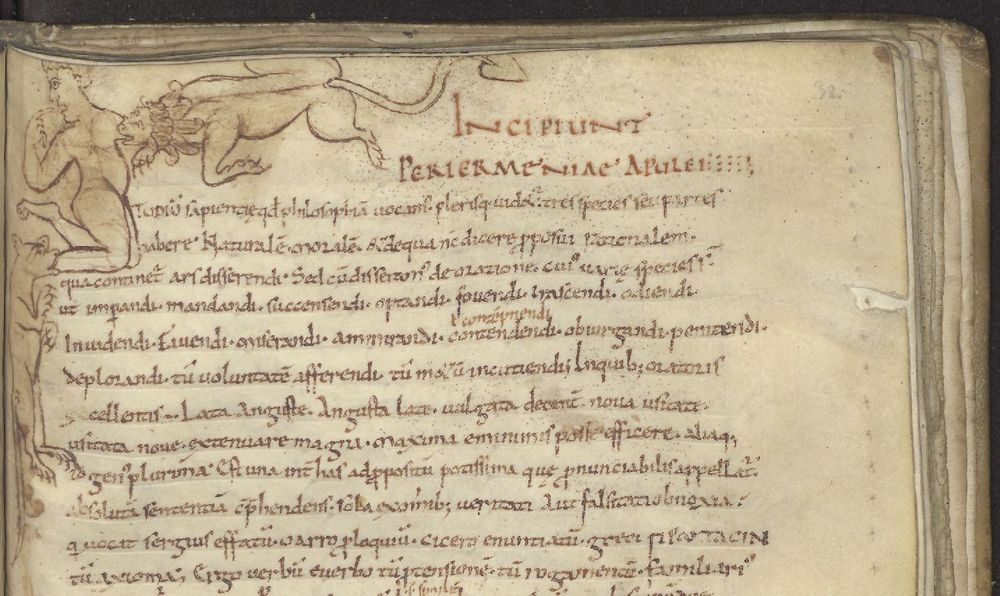 32
INCIPIUNT
PERIERMENIAE APULEI
Studiū sapientię qđ philosophiā uocam̄ plerisq; uidet̄ tres species seu partes
habere. Naturalē. moralē. & de qua nc̄ dicere p̱posui rationalem.
qua continet̄ ars disserendi. Sed cū disseram̄ de oratione. cui᾿ uarię species s̄t
ut imperandi. mandandi. succensendi. optandi. fouendi. irascendi. odiendi.
Inuidendi. Fauendi. miserandi. ammirandi. contendendi. obiurgandi. penitendi.
ł contempnendi
deplorandi. tū uoluntatē afferendi. tū metū incutiendi. In quib; oratoris
excellentis. Lata anguste. Angusta late. uulgata decent̄. noua usitate.
usitata noue. extenuare magna. maxima e minimis posse efficere. aliaq;
id gen᾿ plurima. Est una int̄ has ad p̱positū potissima quę p̱nunciabilis appellat̄.
absolutā sententiā cp̄hendens. sola ex om̄ib; ueritati aut falsitati obnoxia.
quā uocat sergius effatū. uarro p̱loquiū. cicero enuntiatū. greci PROTASIN
tū axioma. Ergo uerbū e uerbo tū p̱tensionē. tū rogamentū. familiari᾿